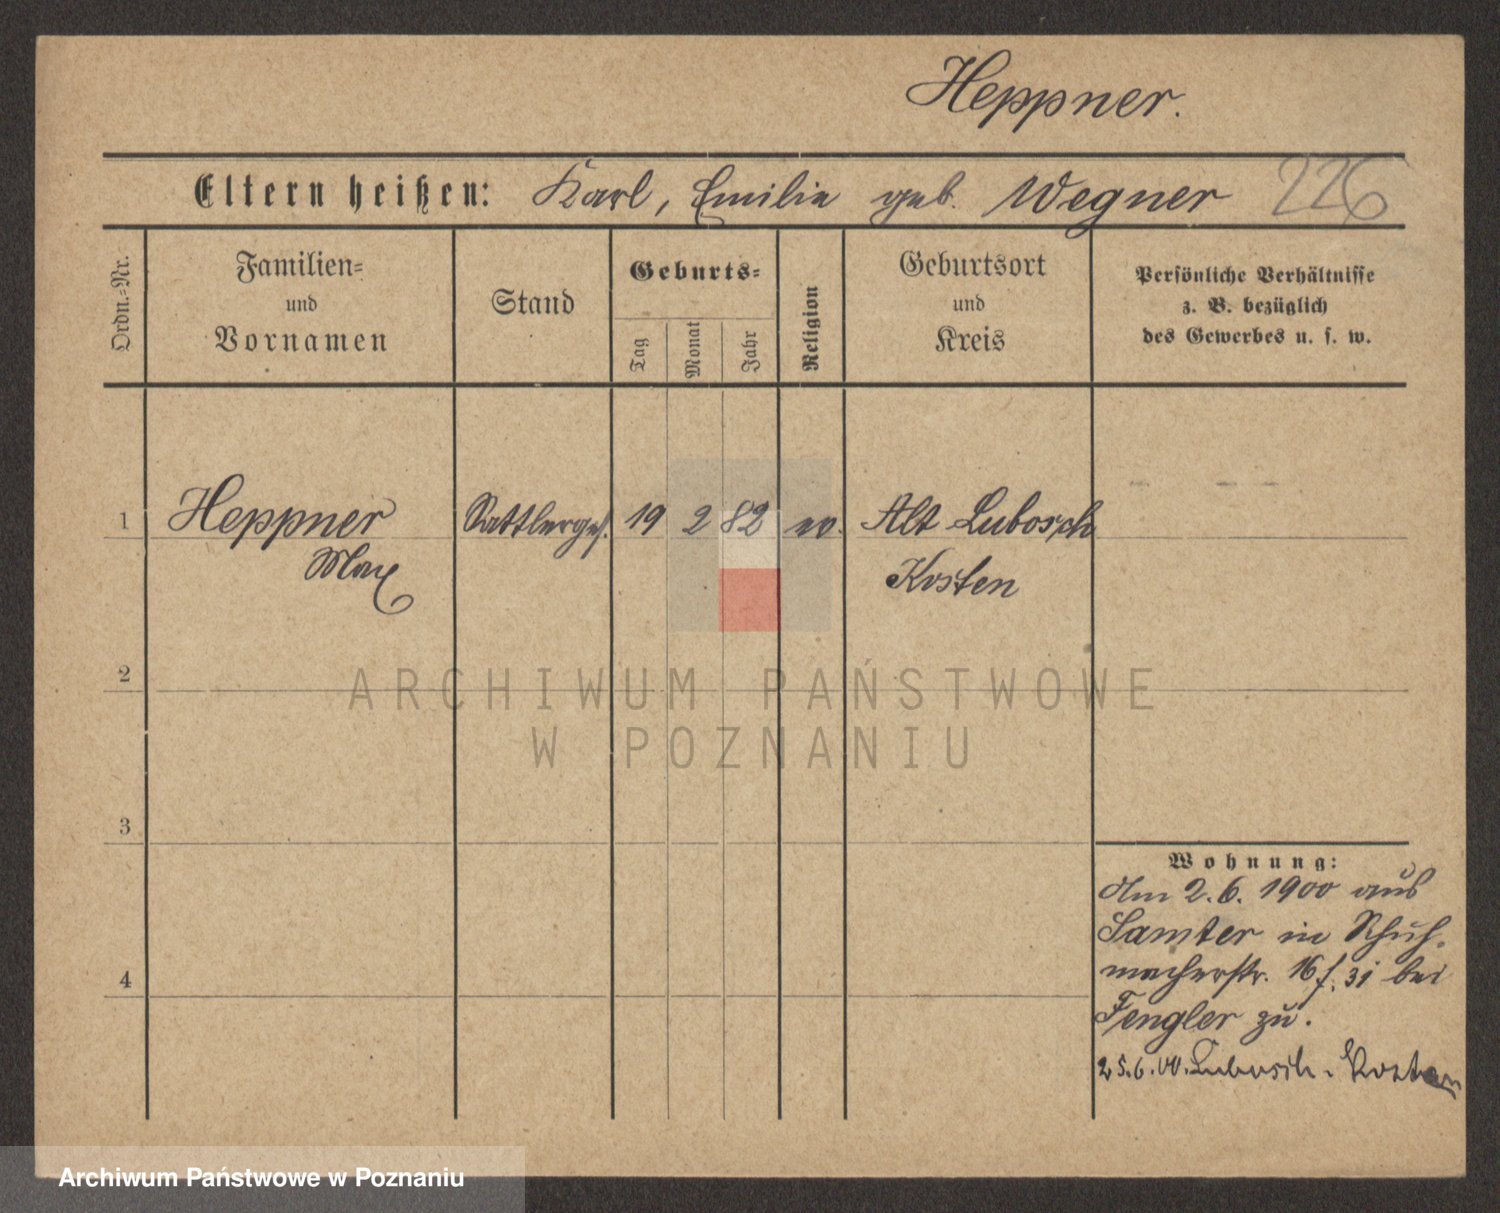 Heppner.
Eltern heißen: Karl, Emilie geb. Wegner 226
Ordn.-Nr.
Familien-
und
Vornamen
Stand
Geburts-
Tag
Monat
Jahr
Religion
Geburtsort
und
Kreis
Persönliche Verhältnisse
z. B. bezüglich
des Gewerbes u. s. w.
1 Heppner Sattlergeh. 19 2 82 ev. Alt Lubosch
Max Kosten
2
ARCHIWUM PAŃSTWOWE
W POZNANIU
3
Wohnung:
Am 2.6.1900 aus
Samter in Schuh-
macherstr. 16 f. 31 bei
4
Fengler zu.
25.6.00. Lubosch. Kosten
Archiwum Państwowe w Poznaniu